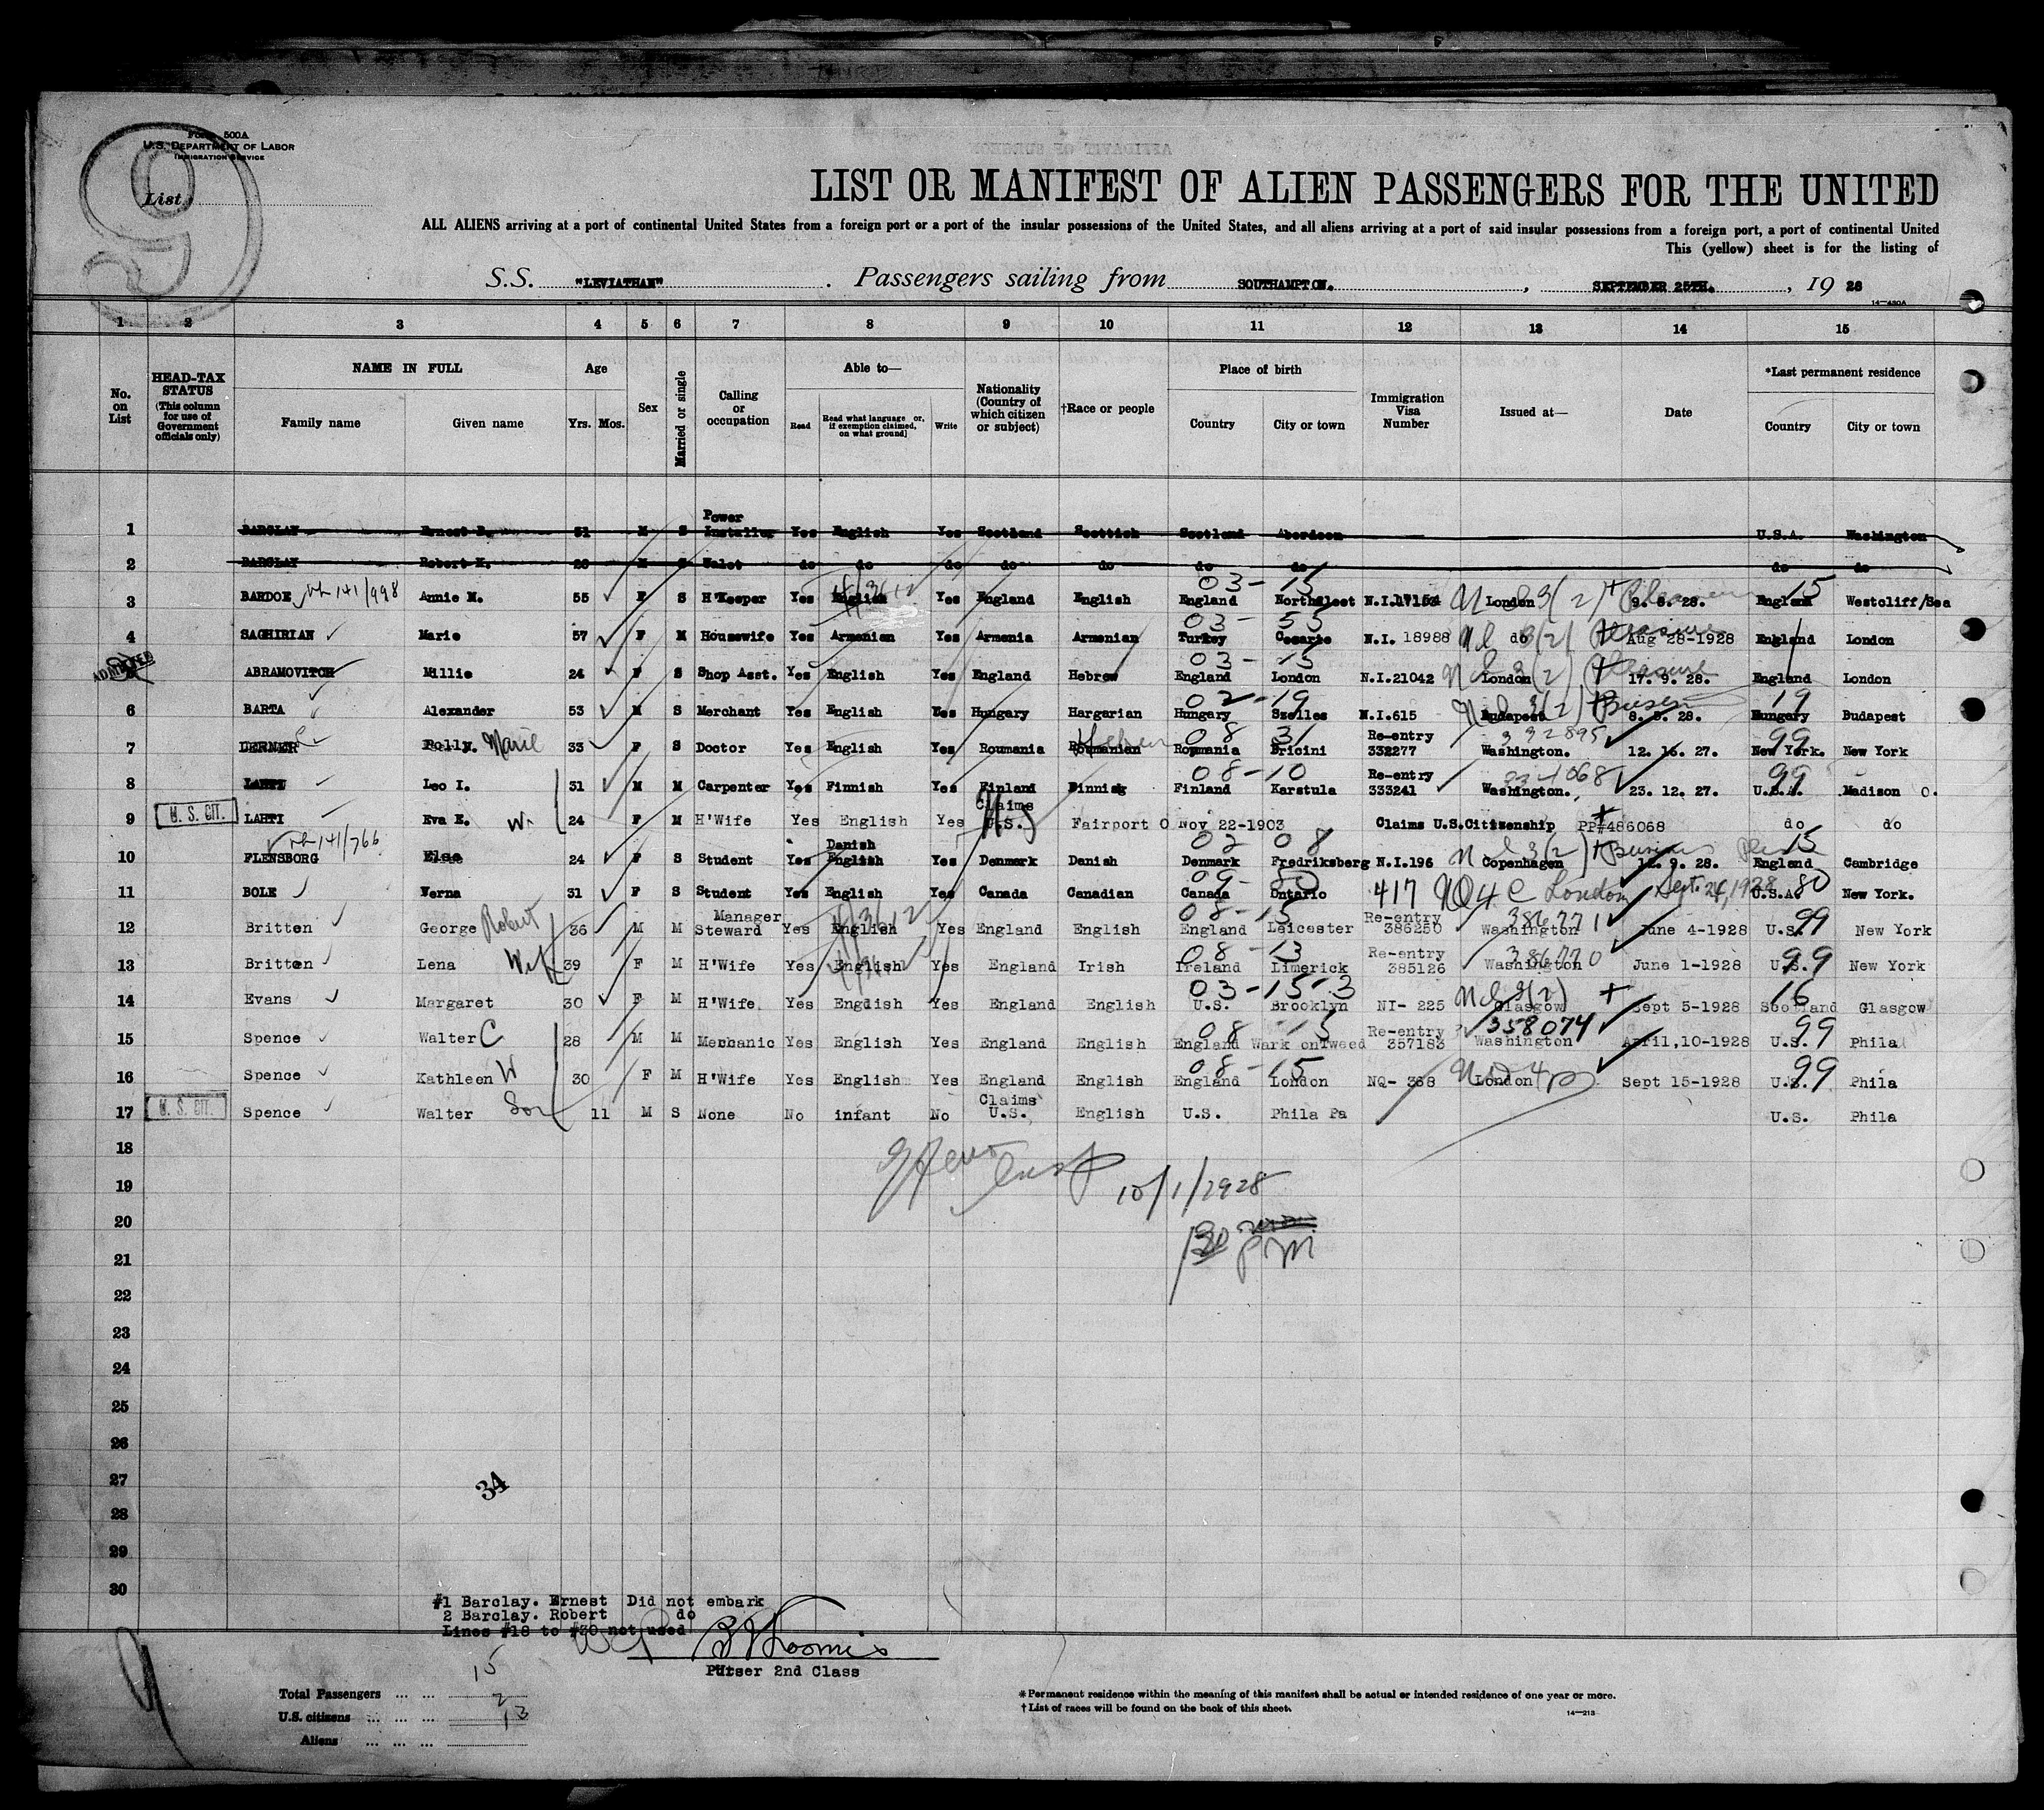 Form 500A
U.S. DEPARTMENT OF LABOR
IMMIGRATION SERVICE
List
9
LIST OR MANIFEST OF ALIEN PASSENGERS FOR THE UNITED
ALL ALIENS arriving at a port of continental United States from a foreign port or a port of the insular possessions of the United States, and all aliens arriving at a port of said insular possessions from a foreign port, a port of continental United
This (yellow) sheet is for the listing of
S.S. "LEVIATHAN". Passengers sailing from SOUTHAMPTON. , SEPTEMBER 25TH. , 19 28
14—430A
1 2 3 4 5 6 7 8 9 10 11 12 13 14 15
No. on List
HEAD-TAX STATUS (This column for use of Government officials only)
NAME IN FULL
Family name Given name
Age
Yrs. Mos.
Sex
Married or single
Calling or occupation
Able to—
Read Read what language or, if exemption claimed, on what ground] Write
Nationality (Country of which citizen or subject)
†Race or people
Place of birth
Country City or town
Immigration Visa Number
Issued at—
Date
*Last permanent residence
Country City or town
1 BARCLAY Ernest 51 M S Power Installer Yes English Yes Scotland Scottish Scotland Aberdeen U.S.A. Washington
2 BARCLAY Robert M S Valet do do do do do do do do do
3 BARDOE 141/998 Annie M. 55 F S H'Keeper Yes English Yes England English England Northfleet N.I. London 9. 8. 28. England Westcliff/Sea
03-15 3(2) + Pleasure 15
4 SAGHIRIAN Marie 57 F M Housewife Yes Armenian Yes Armenia Armenian Turkey Cesarie N.I. 18988 do Aug 28-1928 England London
03-55 3(2) + Pleasure
ADMITTED ABRAMOVITCH Millie 24 F S Shop Asst. Yes English Yes England Hebrew England London N.I.21042 London 17. 9. 28. England London
03-15 3(2) + Pleasure
6 BARTA Alexander 53 M S Merchant Yes English Yes Hungary Hargarian Hungary Szolles N.I.615 Budapest 8. 28. Hungary Budapest
02-19 3(2) + 19
7 Polly Marie 33 F S Doctor Yes English Yes Roumania Roumanian Hebrew Roumania Bricini Re-entry 332277 Washington. 12. 16. 27. New York. New York
08 31 332895 99
8 LAHTI Leo I. 31 M M Carpenter Yes Finnish Yes Finland Finnish Finland Karstula Re-entry 333241 Washington. 23. 12. 27. U.S.A. Madison O.
08-10 99
9 U. S. CIT. LAHTI Eva E. W. 24 F M H'Wife Yes English Yes Claims U.S. Fairport O Nov 22-1903 Claims U.S.Citizenship PP#486068 do do
10 FLENSBORG 141/766 Else 24 F S Student Yes Danish English Yes Denmark Danish Denmark Fredriksberg N.I.196 Copenhagen 12. 9. 28. England Cambridge
02 08 3(2) + 15
11 BOLE Verna 31 F S Student Yes English Yes Canada Canadian Canada Ontario 417 London Sept. 24, 1928 U.S.A. New York.
09-80 80
12 Britten George Robert 36 M M Manager Steward Yes English Yes England English England Leicester Re-entry 386250 Washington June 4-1928 U.S. New York
08-15 386771 99
13 Britten Lena Wife 39 F M H'Wife Yes English Yes England Irish Ireland Limerick Re-entry 385126 Washington June 1-1928 U.S. New York
08-13 386770 99
14 Evans Margaret 30 F M H'Wife Yes English Yes England English U.S. Brooklyn NI- 225 Glasgow Sept 5-1928 Scotland Glasgow
03-15-3 3(2) + 16
15 Spence Walter C 28 M M Mechanic Yes English Yes England English England Wark onTweed Re-entry 357183 Washington April,10-1928 U.S. Phila
08-15 358074 99
16 Spence Kathleen W 30 F M H'Wife Yes English Yes England English England London NQ- 368 London Sept 15-1928 U.S. Phila
08-15 99
17 U. S. CIT. Spence Walter Son 11 M S None No infant No Claims U.S. English U.S. Phila Pa U.S. Phila
18
19 10/1/1928
20
21 130 PM
22
23
24
25
26
27
28 34
29
30
#1 Barclay. Ernest Did not embark
2 Barclay. Robert do
Lines #18 to #30 not used
Purser 2nd Class
Total Passengers ... ... 15
U.S. citizens ... ... ... 2
Aliens ... ... ... 13
*Permanent residence within the meaning of this manifest shall be actual or intended residence of one year or more.
†List of races will be found on the back of this sheet.
14—213